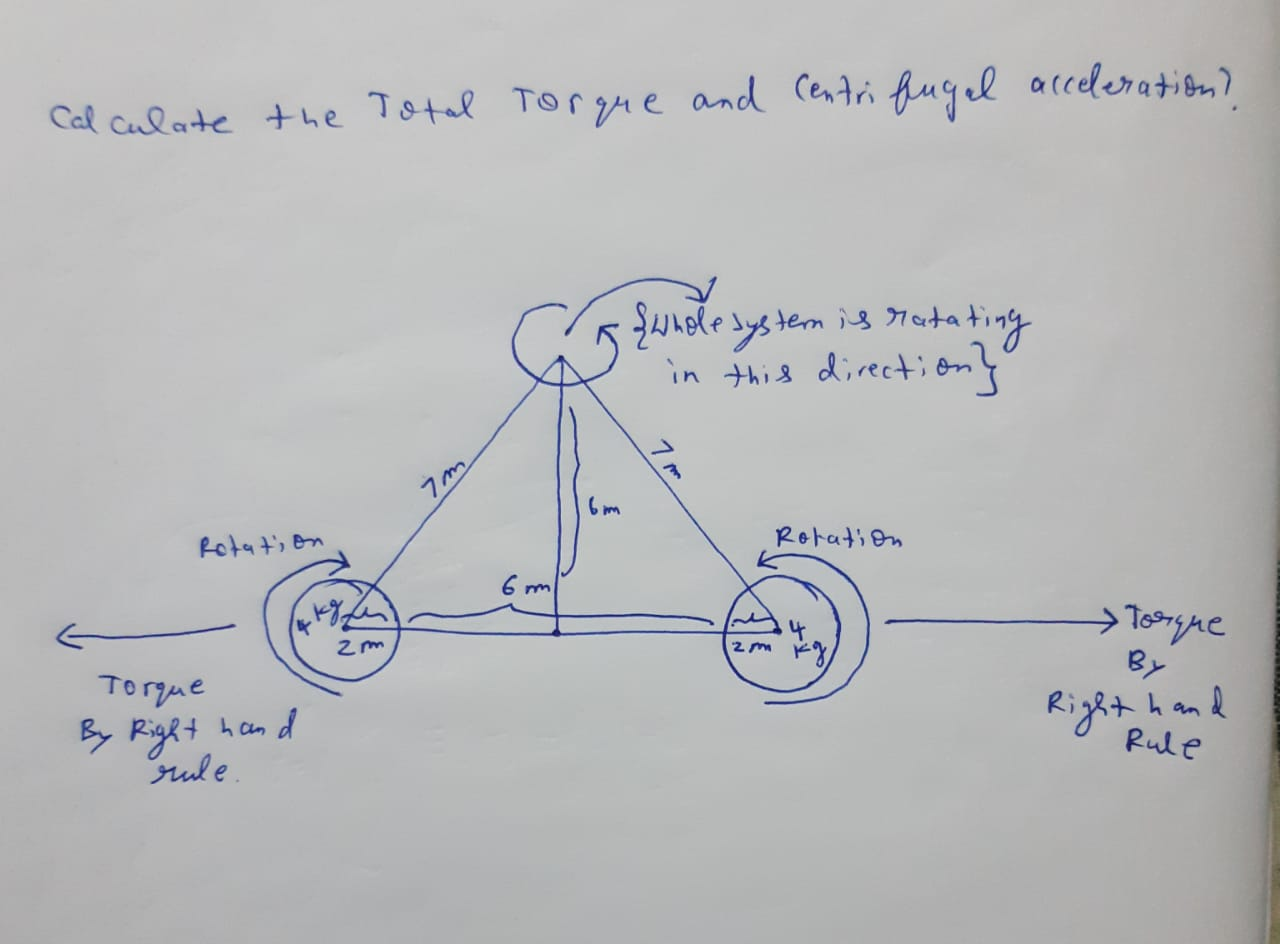 Calculate the Total Torque and Centrifugal acceleration?
{Whole system is ratating
in this direction}
7m
7m
6m
Rotation
Rotation
6m
4 kg
2m
2m
4
kg
Torque
By Right hand
rule.
Torque
By
Right hand
Rule